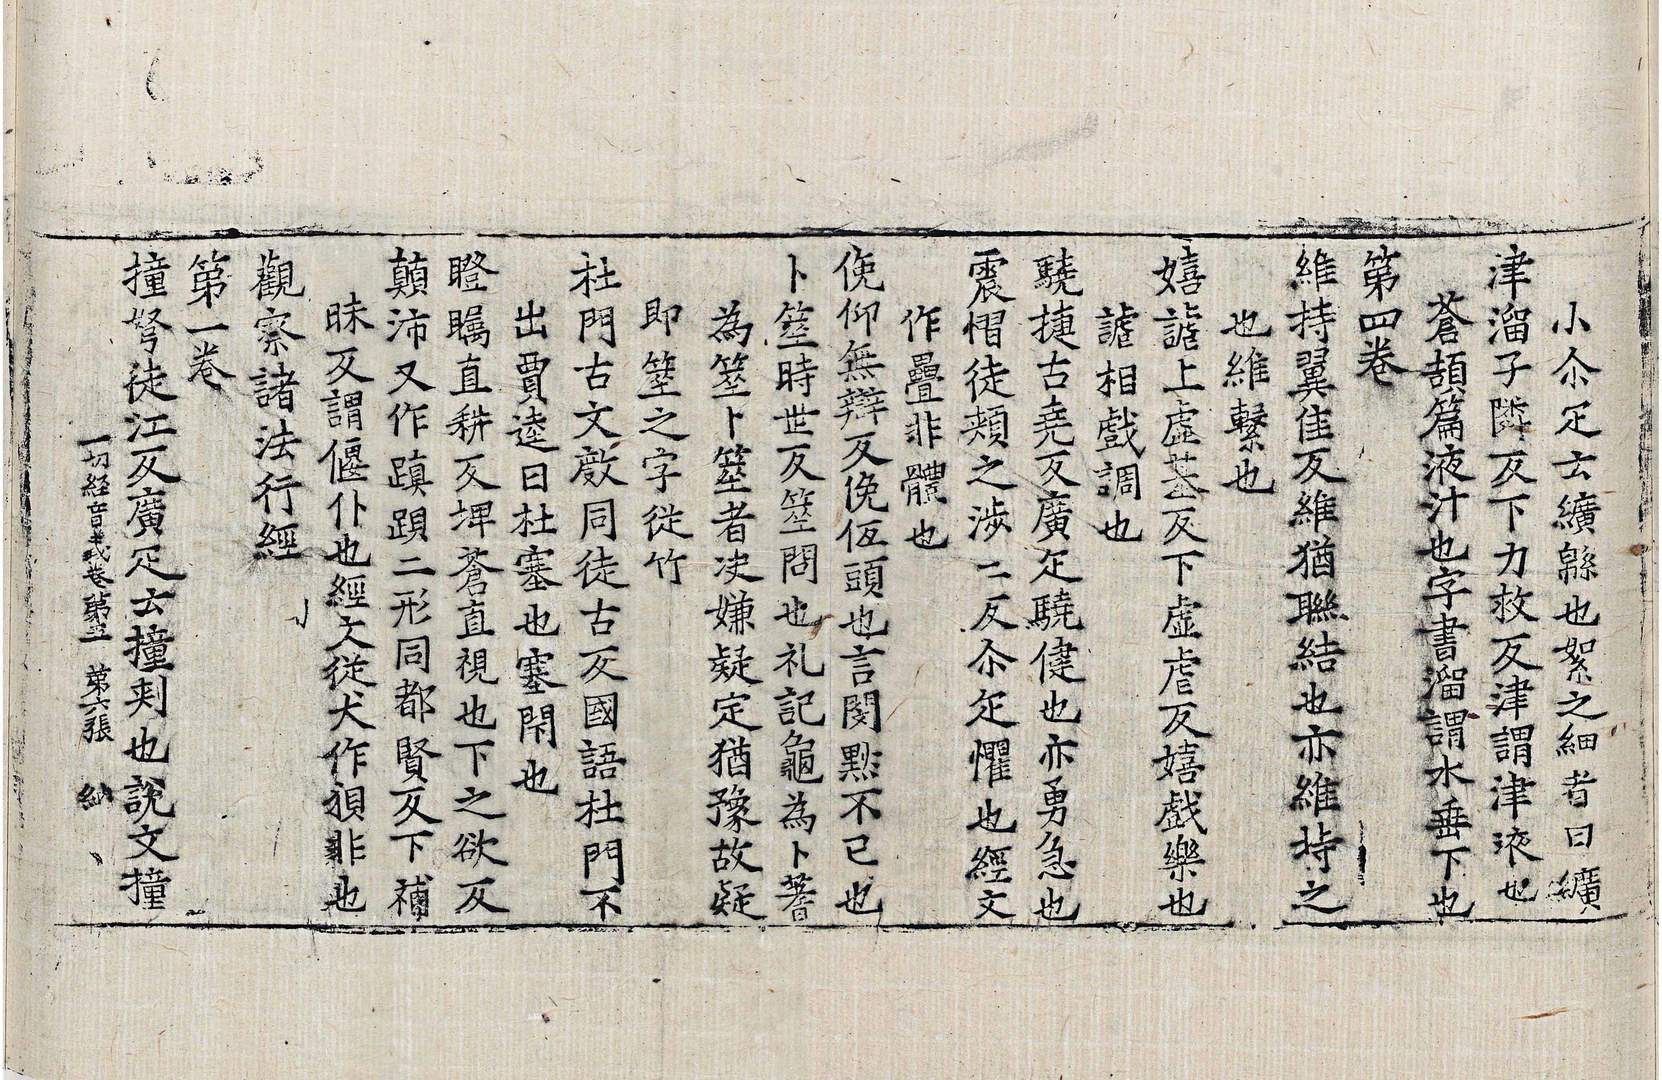 小尒疋云纊緜也絮之細者曰纊
津溜子隣反下力救反津謂津液也
蒼頡篇液汁也字書溜謂水垂下也
第四卷
維持翼隹反維猶聯結也亦維持之
也維繫也
嬉謔上虛基反下虛虐反嬉戲樂也
謔相戲調也
驍捷古堯反廣疋驍健也亦勇急也
震慴徒頰之涉二反尒疋懼也經文
作疊非體也
俛仰無辯反俛伍頭也言閔默不已也
卜筮時世反筮問也礼記龜為卜蓍
為筮卜筮者決嫌疑定猶豫故疑
即筮之字從竹
杜門古文𢾖同徒古反國語杜門不
出賈逵曰杜塞也塞閇也
瞪矚直耕反埤蒼直視也下之欲反
顛沛又作蹎䫜二形同都賢反下補
昧反謂偃仆也經文從犬作狽非也
觀察諸法行經
第一卷
撞弩徒江反廣疋云撞刾也說文撞
一切經音義卷第五　第六張